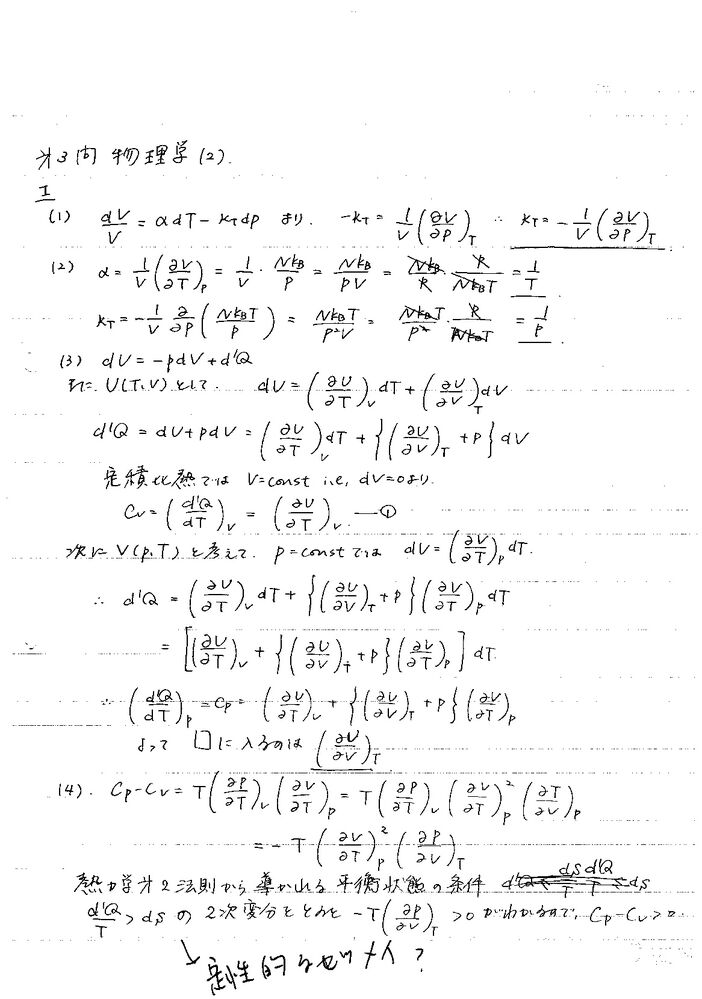 オ3問 物理学(2).
I
(1) dV/V = αdT − κ_T dp より. −κ_T = 1/V (∂V/∂P)_T ∴ κ_T = − 1/V (∂V/∂P)_T
(2) α = 1/V (∂V/∂T)_p = 1/V · Nk_B/P = Nk_B/PV = Nk_B/P · P/Nk_BT = 1/T
κ_T = − 1/V ∂/∂P (Nk_BT/P) = Nk_BT/P²V = Nk_BT/P² · P/Nk_BT = 1/P
(3) dU = −pdV + d'Q
U(T,V) として. dU = (∂U/∂T)_V dT + (∂U/∂V)_T dV
d'Q = dU + pdV = (∂U/∂T)_V dT + {(∂U/∂V)_T + P} dV
定積比熱では V=const i.e, dV=0より.
C_V = (d'Q/dT)_V = (∂U/∂T)_V. —①
次に V(p,T) と考えて. p=constでは dV = (∂V/∂T)_P dT.
∴ d'Q = (∂U/∂T)_V dT + {(∂U/∂V)_T + P}(∂V/∂T)_P dT
= [(∂U/∂T)_V + {(∂U/∂V)_T + P}(∂V/∂T)_P] dT
∴ (d'Q/dT)_P = C_P = (∂U/∂T)_V + {(∂U/∂V)_T + P}(∂V/∂T)_P
よって □に入るのは (∂U/∂V)_T
(4). C_P − C_V = T(∂P/∂T)_V (∂V/∂T)_P = T(∂P/∂T)_V (∂V/∂T)_P² (∂T/∂V)_P
= − T (∂V/∂T)_P² (∂P/∂V)_T
熱力学オ2法則から導かれる平衡状態の条件
d'Q/T > dS の2次変分をとると −T(∂P/∂V)_T > 0 がわかるので, C_P − C_V > 0.
↘ 定性的なセツメイ?